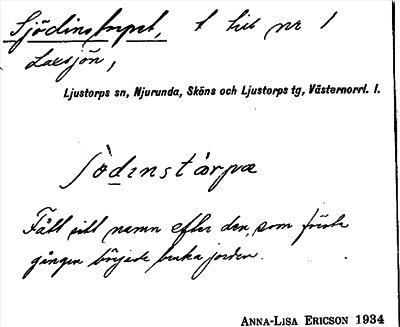 Sjödinstorpet, t hit nr 1
Laxsjön,
Ljustorps sn, Njurunda, Sköns och Ljustorps tg, Västernorrl. l.
Fått sitt namn efter den, som första
gången började bruka jorden.
ANNA-LISA ERICSON 1934